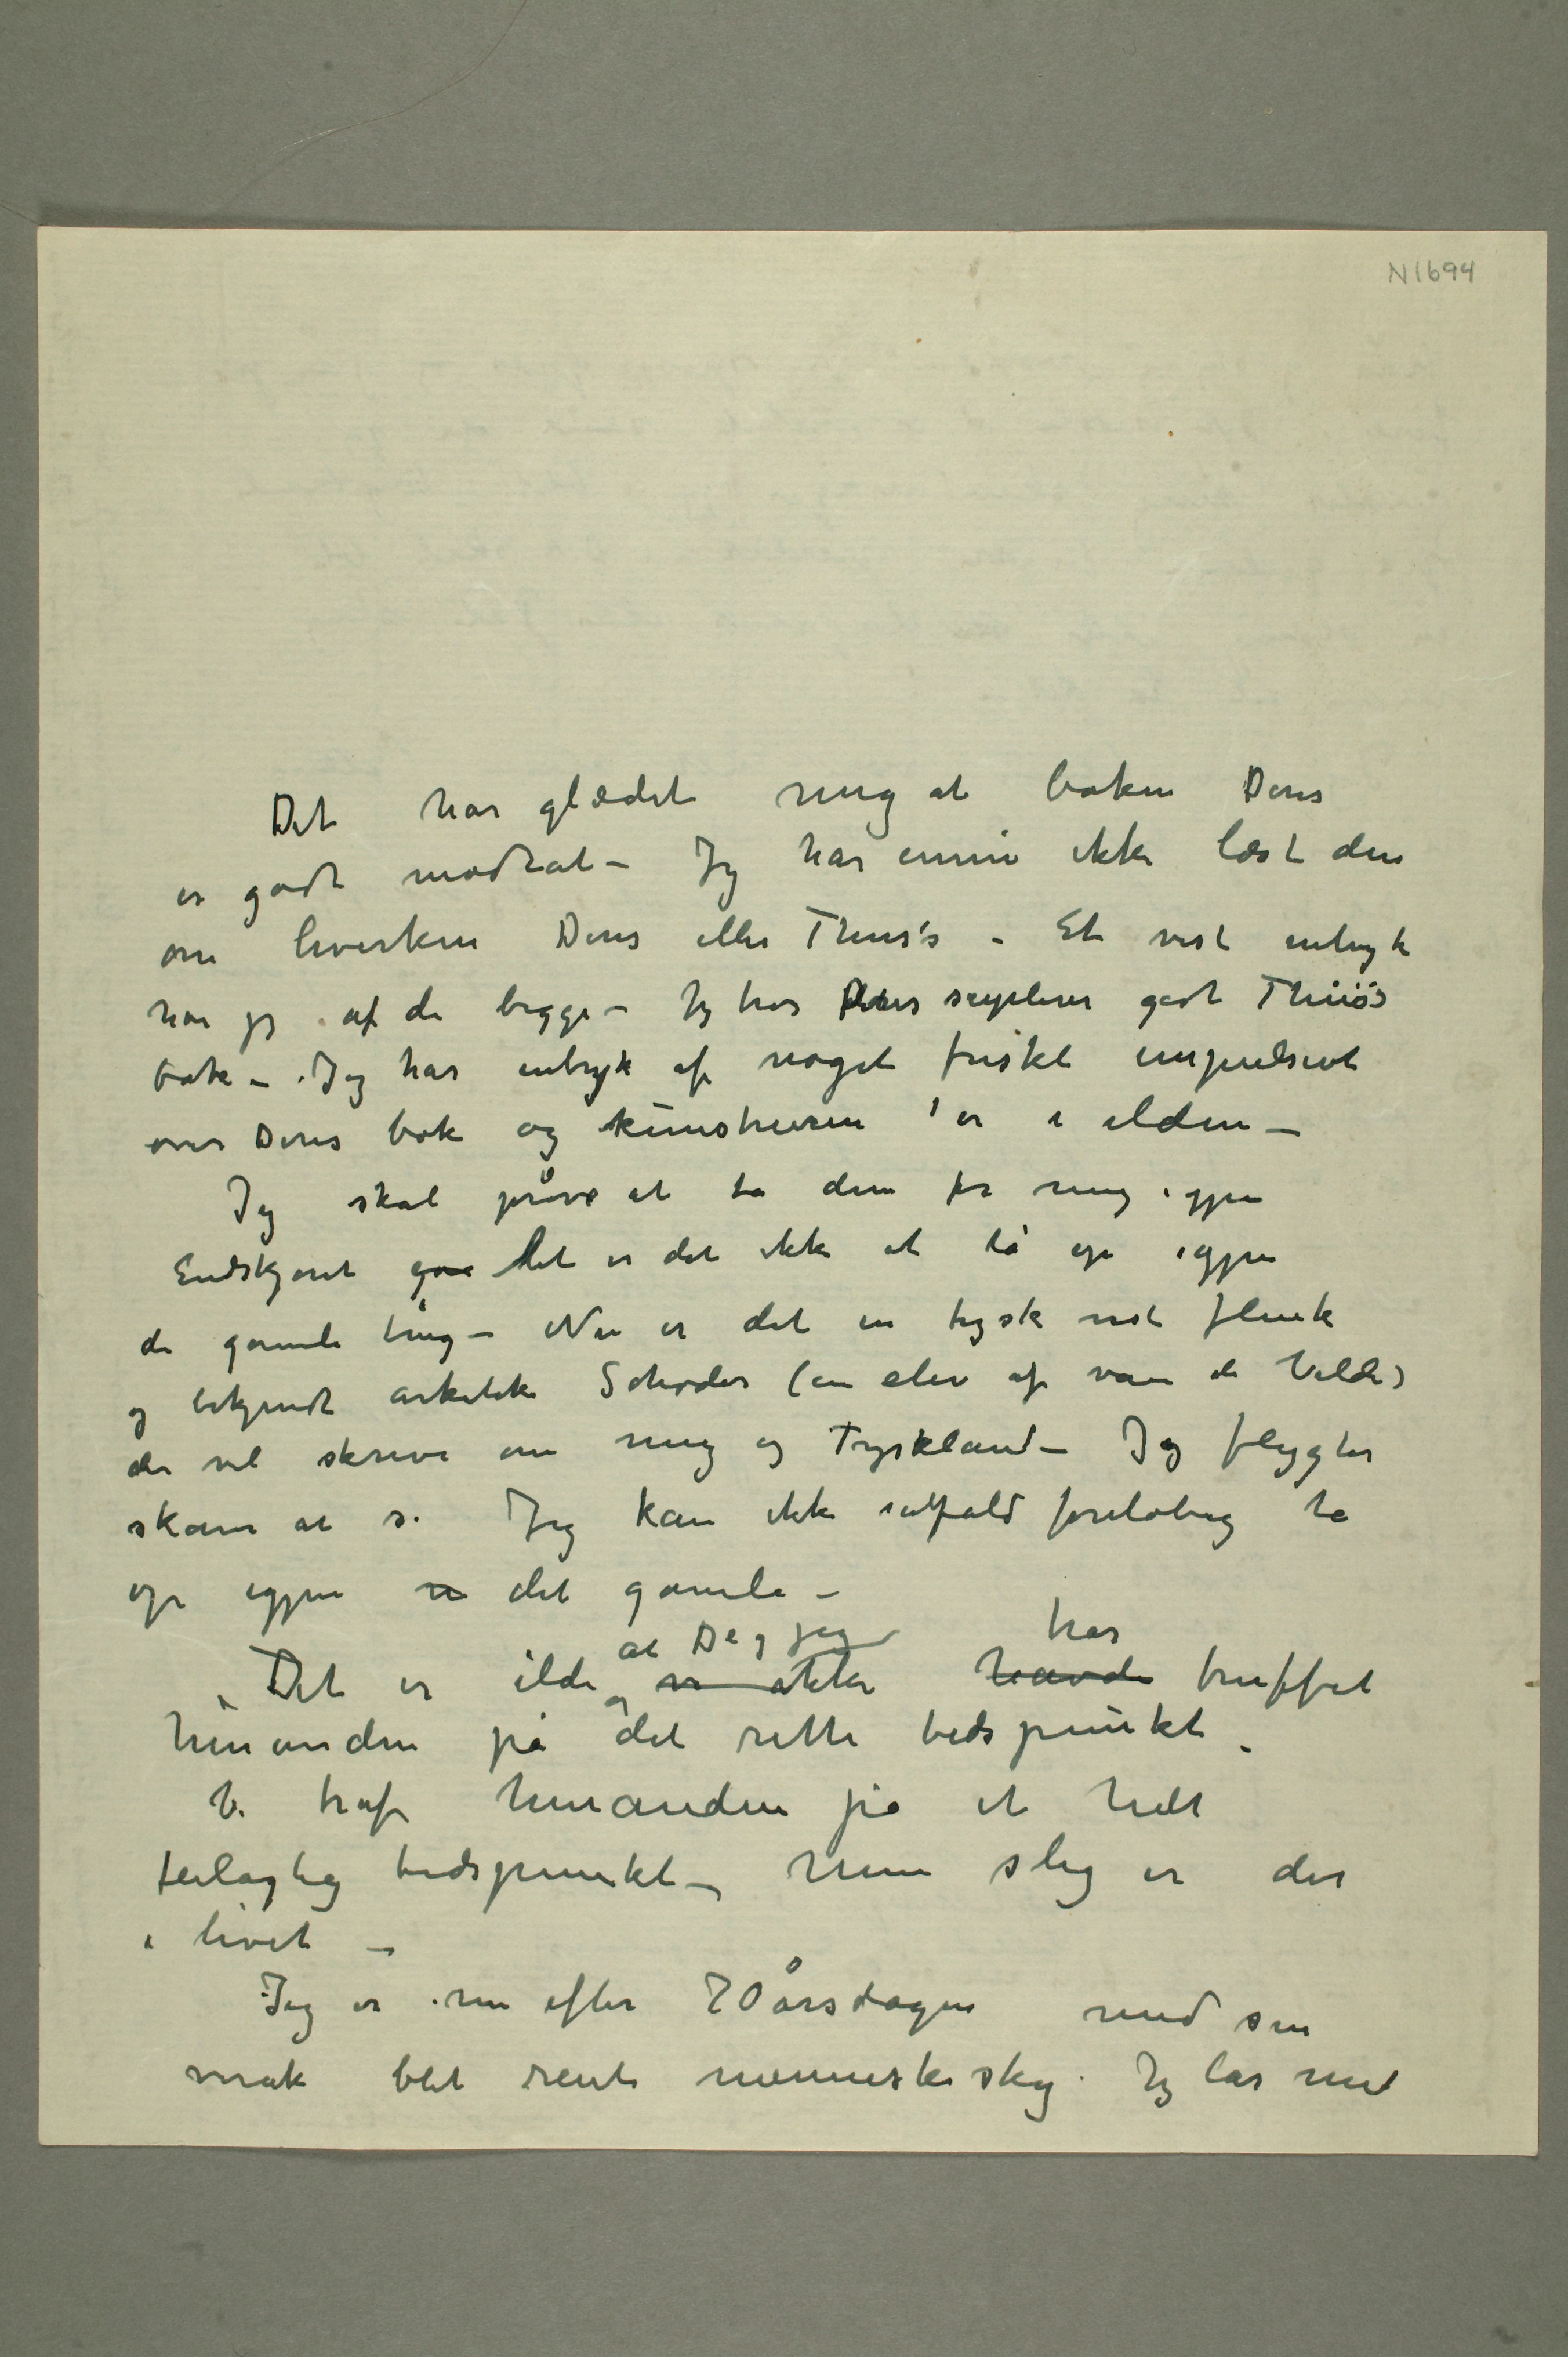 N1694
Det har glædet mig at boken Deres
er godt modtat – Jeg har ennu ikke læst den
om hverken Deres eller Thiis's – Et vist indtryk
har jeg af de begge – Jeg tror Deres suplerer godt Thiis's
bok – Jeg har indtryk af noget friskt impulsivt
over Deres bok og kunstneren er i ilden –
Jeg skal prøve at ta dem for mig igjen
Endskjønt let er det ikke at ta op igjen
de gamle ting – Nu er det en tysk vist flink
og bekjendt arkitekt Schrøder (en elev af van de Velde)
der vil skrive om mig og Tyskland – Jeg flygter
skam at si Jeg kan ikke ialfald foreløbig ta
op igjen det gamle –
at De og jeg har
Det er ilde vi ikke havde truffet
hinanden på det rette tidspunkt –
Vi traf hinanden på et helt
feilagtig tidspunkt – Men slig er det
i livet –
Jeg er nu efter 70årsdagen med sin
mak blet rent menneskesky. Jeg lar mit